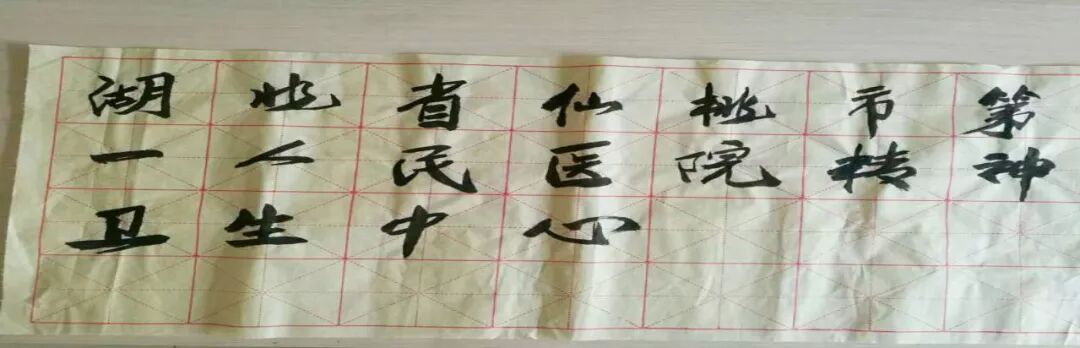 湖北省仙桃市第
一人民医院精神
卫生中心